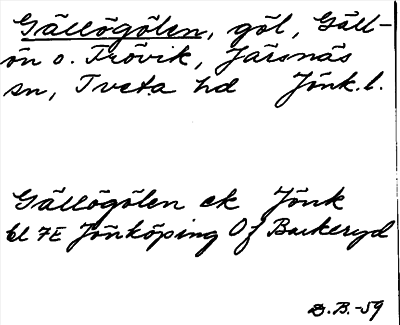 Gällögölen, göl, Gäll-
ön o. Trövik, Järsnäs
sn, Tveta hd Jönk.l.
Gällögölen ek Jönk
bl 7E Jönköping Of Barkeryd
D.B.-59